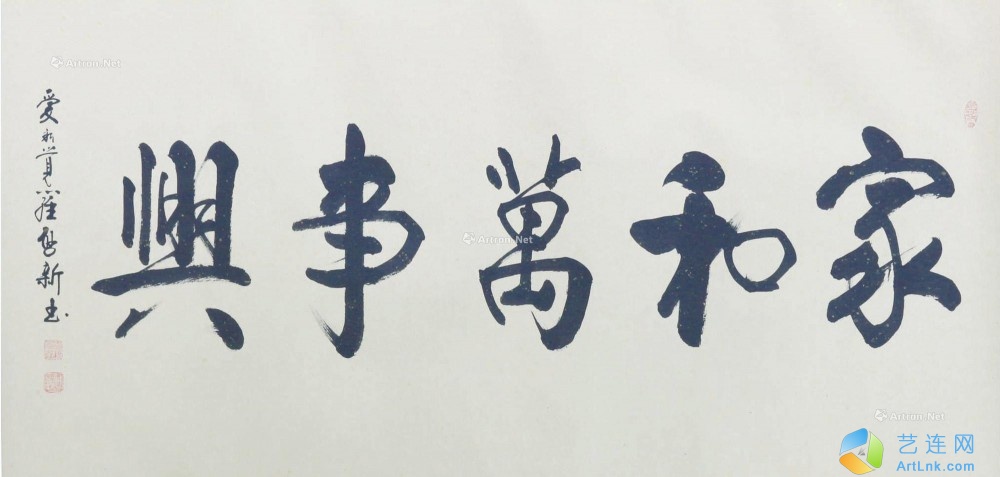 家和萬事興
愛新覺羅啟新書
Artron.Net
Artron.Net
Artron.Net
艺连网
ArtLnk.com